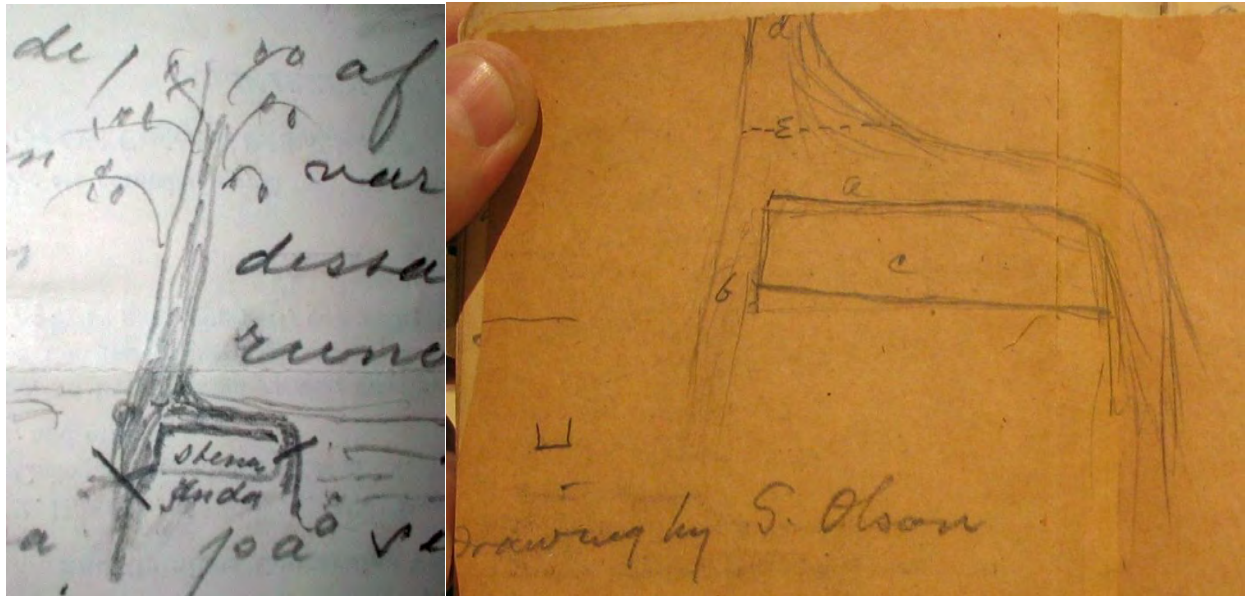 de, af
var
dessa
rune
stena
ända
a på se
d
E
a
b
c
Drawing by S. Olson